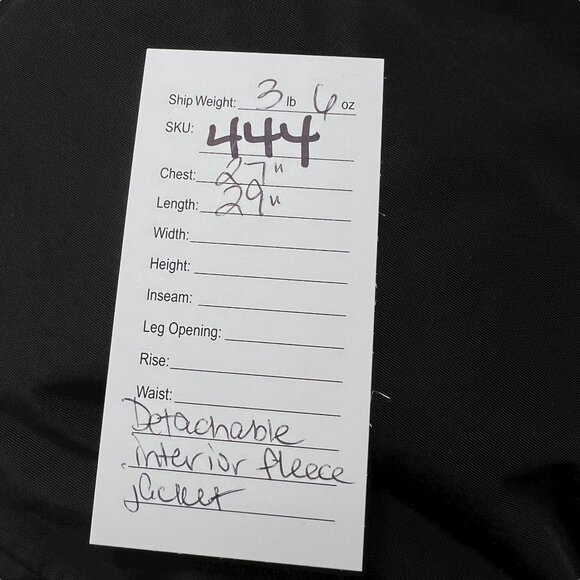 Ship Weight: 3 lb 6 oz
SKU: 444
Chest: 27"
Length: 29"
Width:
Height:
Inseam:
Leg Opening:
Rise:
Waist:
Detachable
interior fleece
jacket